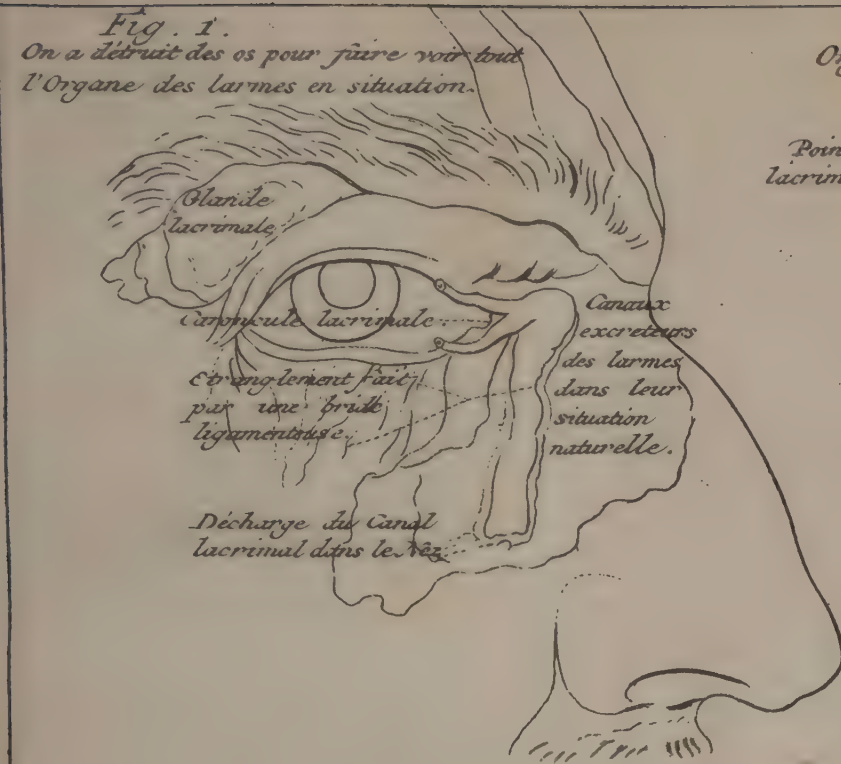 Fig. 1.
On a détruit des os pour faire voir tout
l'Organe des larmes en situation.
Glande
lacrimale
Caroncule lacrimale
Etranglement fait
par une bride
ligamenteuse.
Canaux
excreteurs
des larmes
dans leur
situation
naturelle.
Décharge du Canal
lacrimal dans le Nêz